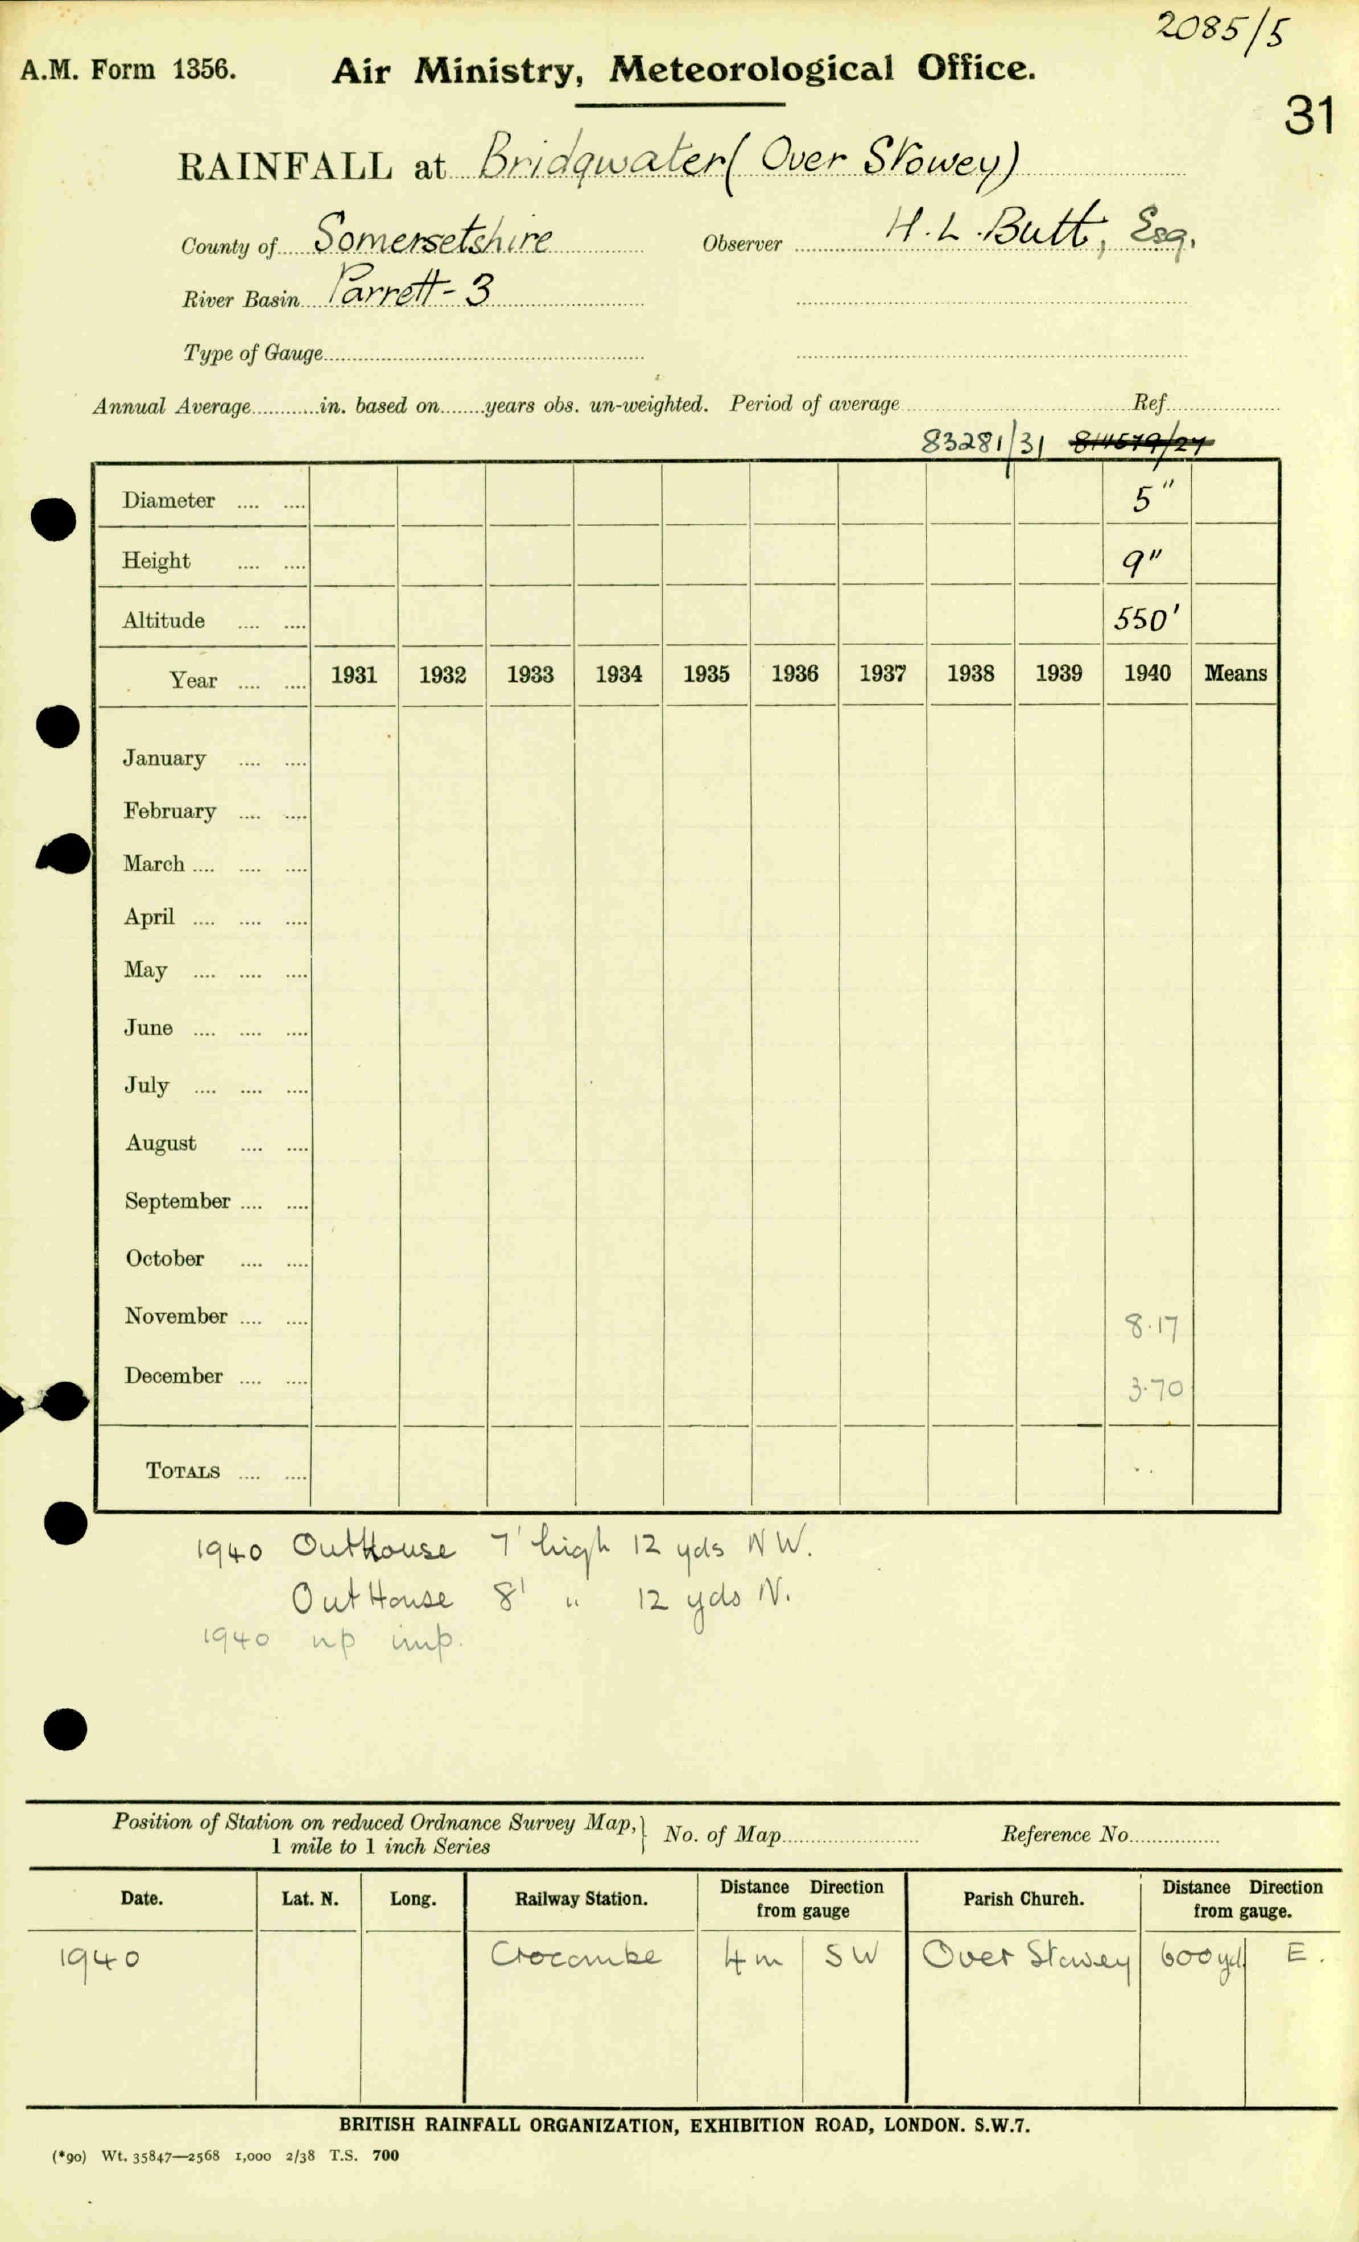 2085/5
A.M. Form 1356. Air Ministry, Meteorological Office.
31
RAINFALL at Bridgwater (Over Stowey)
County of Somersetshire Observer H. L. Butt, Esq.
River Basin Parrett - 3
Type of Gauge
Annual Average in. based on years obs. un-weighted. Period of average Ref.
83281/31
Diameter 5"
Height 9"
Altitude 550'
Year 1931 1932 1933 1934 1935 1936 1937 1938 1939 1940 Means
January
February
March
April
May
June
July
August
September
October
November 8.17
December 3.70
TOTALS
1940 OutHouse 7' high 12 yds NW.
OutHouse 8' " 12 yds N.
1940 np imp.
Position of Station on reduced Ordnance Survey Map, } No. of Map Reference No.
1 mile to 1 inch Series
Date. Lat. N. Long. Railway Station. Distance Direction from gauge Parish Church. Distance Direction from gauge.
1940 Crocombe 4 m SW Over Stowey 600 yd E.
BRITISH RAINFALL ORGANIZATION, EXHIBITION ROAD, LONDON. S.W.7.
(*90) Wt. 35847—2568 1,000 2/38 T.S. 700